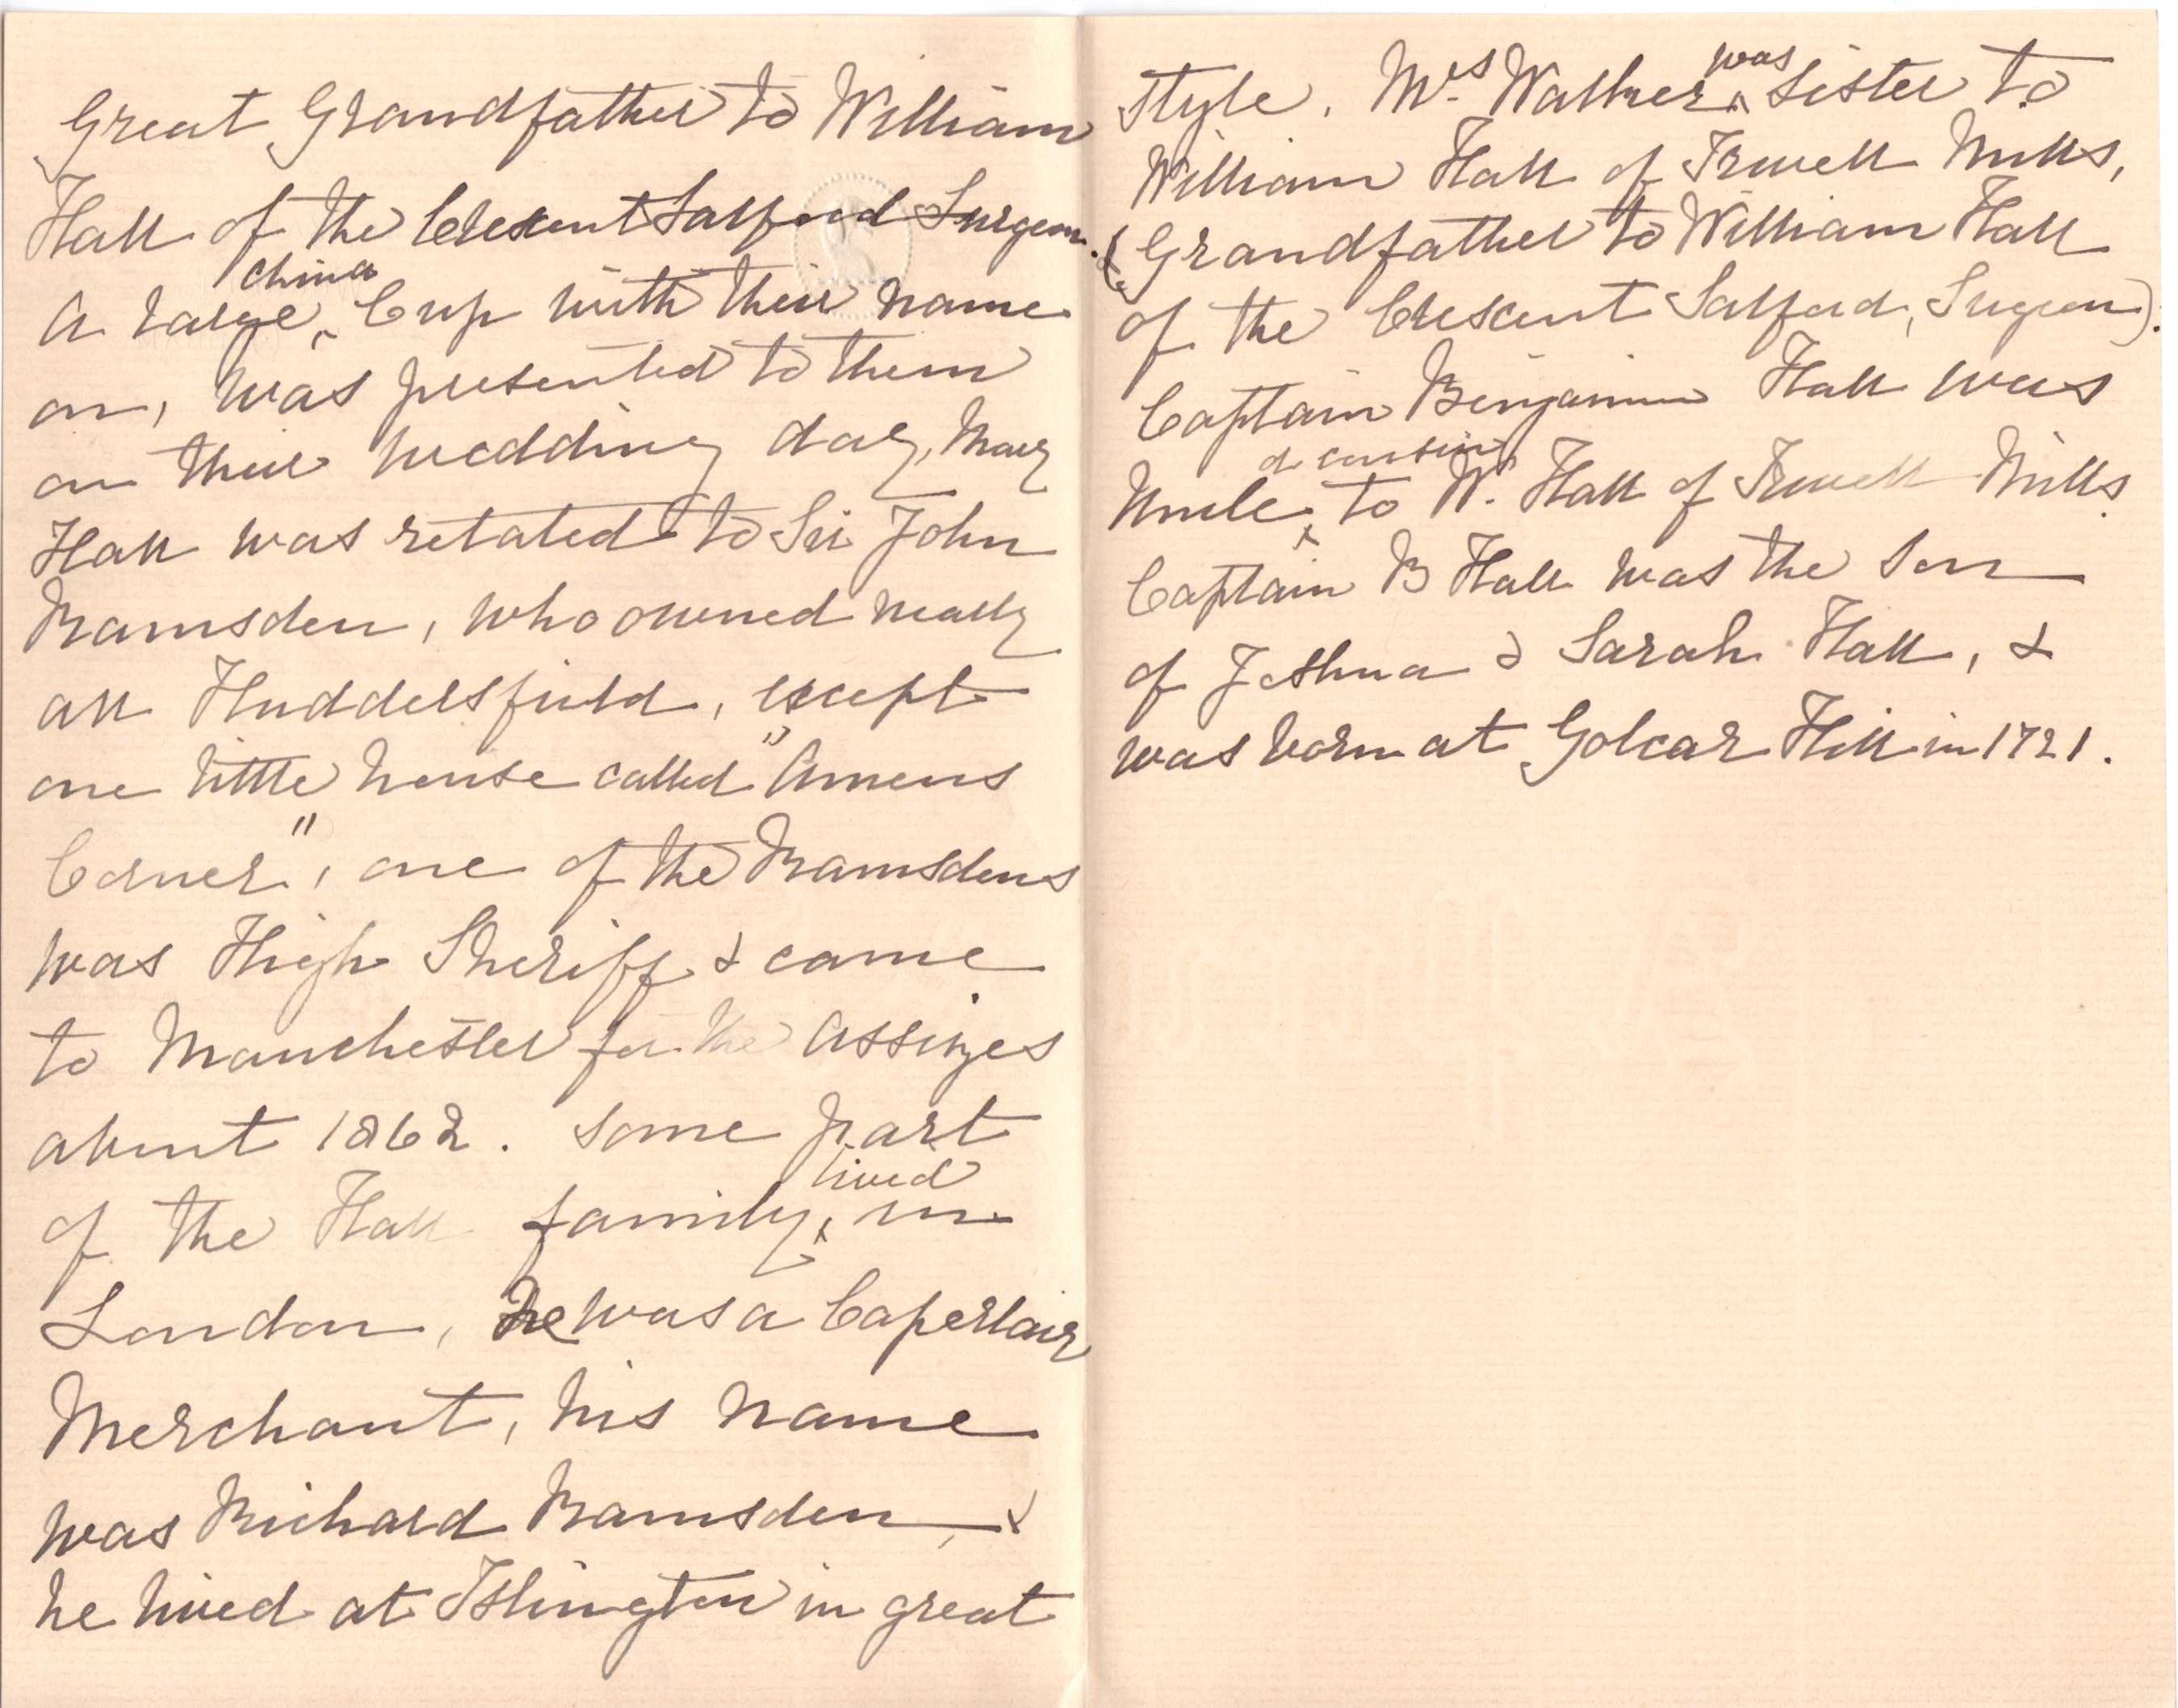 Great Grandfather to William
Hall of the Crescent Salford Surgeon.
A large china Cup with their name
on, was presented to them
on their wedding day, Mary
Hall was related to Sir John
Ramsden, who owned nearly
all Huddersfield, except
one little house called "Amens
Corner", one of the Ramsdens
was High Sheriff & came
to Manchester for the Assizes
about 1862. Some part
of the Hall family lived in
London, he was a
Merchant, his name
was Richard Ramsden, &
he lived at Islington in great
style. Mrs Walker was Sister to
William Hall of Irwell Mills,
(Grandfather to William Hall
of the Crescent Salford, Surgeon).
Captain Benjamin Hall was
Uncle or cousin to W. Hall of Irwell Mills.
Captain B Hall was the Son
of Joshua & Sarah Hall, &
was born at Golcar Hill in 1721.